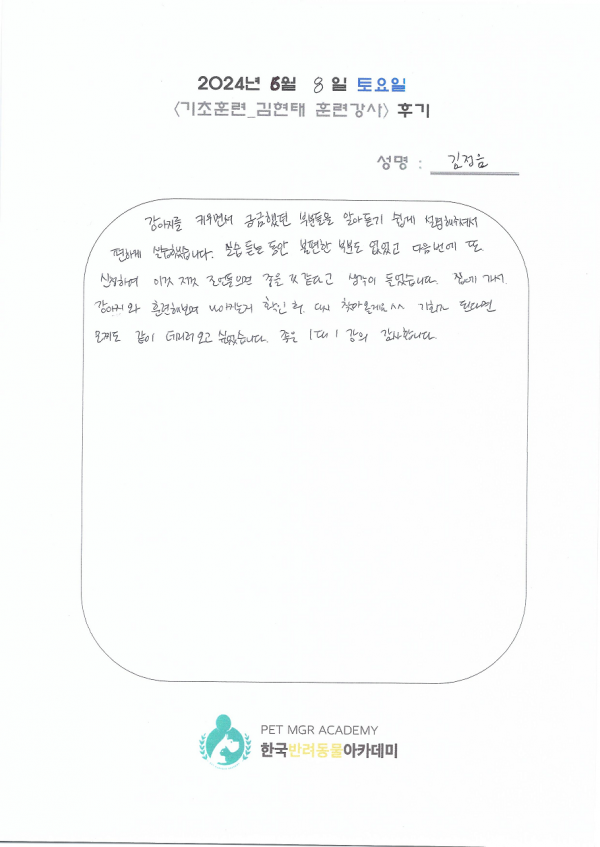 2024년 6월 8일 토요일
<기초훈련_김현태 훈련강사> 후기
성명 : 김정음
강아지를 키우면서 궁금했던 부분들을 알아듣기 쉽게 설명해주셔서
편하게 실습했습니다. 실습 듣는 동안 불편한 부분도 없었고 다음번에 또
신청하여 이것 저것 조언들으면 좋을 것 같다고 생각이 들었습니다. 집에 가서
강아지와 훈련해보며 나아지는거 확인 후 다시 찾아올게요^^ 기회가 된다면
모찌도 같이 데리러 오고 싶었습니다. 좋은 1대1 강의 감사합니다.
PET MGR ACADEMY
한국반려동물아카데미